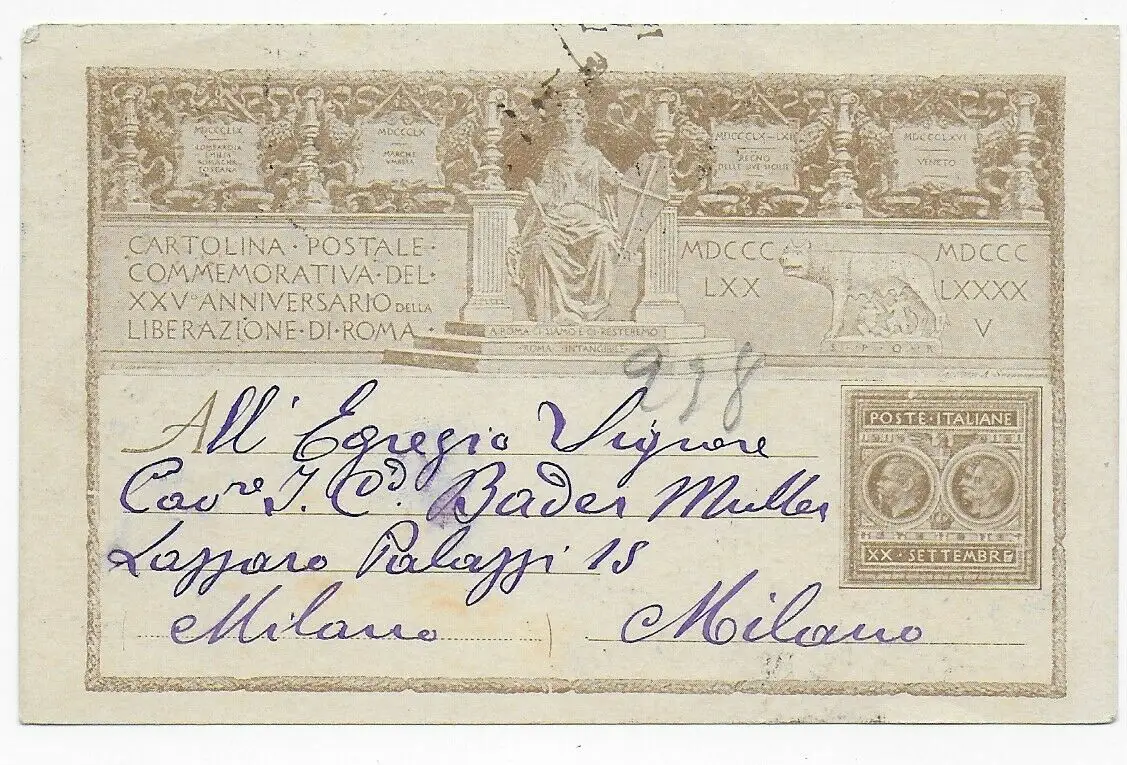 MDCCCLIX
LOMBARDIA
EMILIA
ROMAGNE
TOSCANA
MDCCCLX
MARCHE
UMBRIA
MDCCCLX-LXI
REGNO
DELLE DVE SICILIE
MDCCCLXVI
VENETO
CARTOLINA · POSTALE ·
COMMEMORATIVA · DEL ·
XXVº ANNIVERSARIO DELLA
LIBERAZIONE · DI · ROMA ·
A ROMA CI SIAMO E CI RESTEREMO
ROMA INTANGIBILE
MDCCC
LXX
MDCCC
LXXXX
V
S P Q R
998
POSTE · ITALIANE
XX · SETTEMBRE
All' Egregio Signore
Cavre J. Cd. Bader Muller
Lazzaro Palazzi 15
Milano
Milano